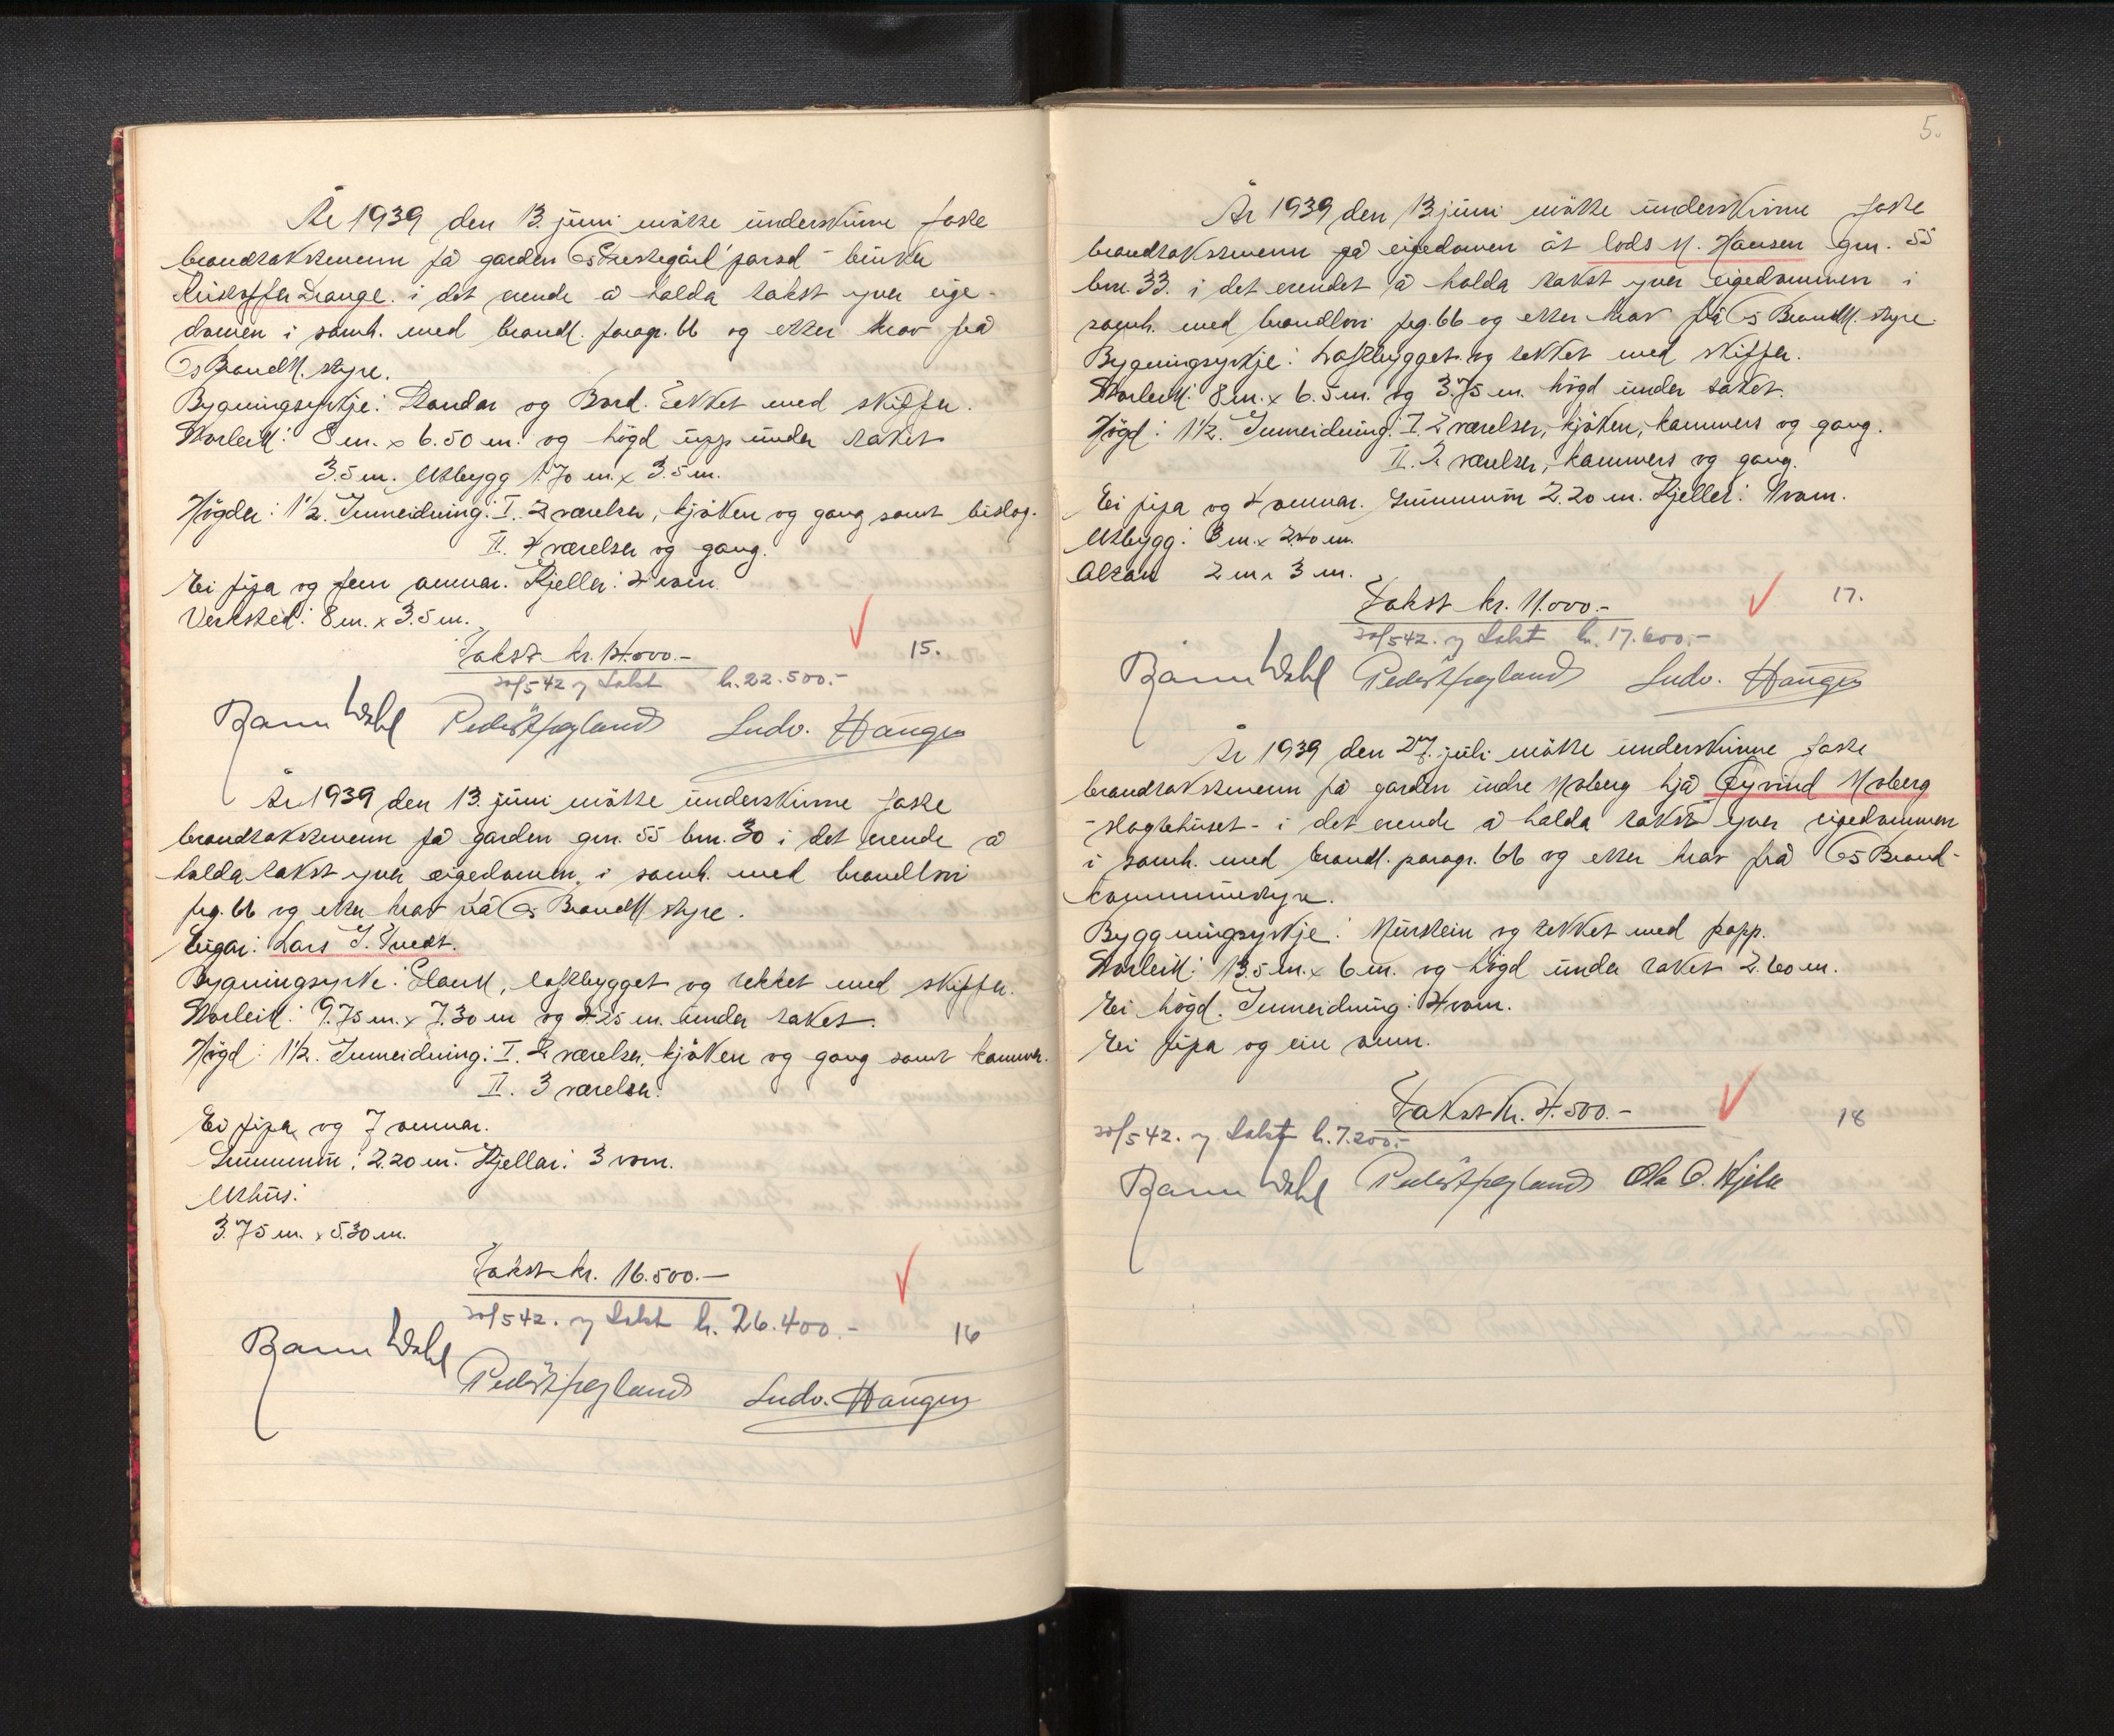 År 1939 den 13. juni møtte underskrivne faste
brandtakstmenn på garden Os Prestegård parsel - brukar
Kristoffer Drange i det ærende å halda takst yver eige-
domen i samh. med brandl. paragr. 66 og etter krav frå
Os Brandk. styre.
Bygningsyrkje: Standar og Bord. Tekket med skiffer.
Storleik: 8 m. x 6.50 m. og høgd upp under taket
3.5 m. Utbygg 1.70 m. x 3.5 m.
Høgder: 1½. Innreidning: I. 2 værelser, kjøken og gang samt bislag.
II. 4 værelser og gang.
Ei pipa og fem omnar. Kjeller: 4 rom.
Verksted: 8 m. x 3.5 m.
Takst kr. 14.000.-
15.
20/5 42 ny takst kr. 22.500.-
Wahl Ludv. Haugen
År 1939 den 13. juni møtte underskrivne faste
brandtakstmenn på garden gnr. 55 bnr. 30 i det ærende å
halda takst yver eigedomen, i samh. med brandlov
prg. 66 og etter krav frå Os Brandk. styre.
Eigar: Lars J. Tveit.
Bygningsyrke: Plank, laftbygget og tekket med skiffer.
Storleik: 9.75 m. x 7.30 m og 4.25 m. under taket.
Høgd: 1½. Innreidning: I. 2 værelser, kjøken og gang samt kammer.
II. 3 værelser.
Ei pipa og 7 omnar.
Grunnmur: 2.20 m. Kjellar: 3 rom.
Uthus:
3.75 m. x 5.30 m.
Takst kr. 16.500.-
20/5 42. ny takst kr. 26.400.-
16
Wahl Ludv. Haugen
5.
År 1939 den 13 juni møtte underskrivne faste
brandtakstmenn på eigedomen åt lods M. Hansen gnr. 55
bnr. 33. i det ærendet å halda takst yver eigedommen i
samh. med brandlov prg. 66 og etter krav frå Os Brandk. styre.
Bygningsyrkje: Laftbygget og tekket med skiffer.
Storleik: 8 m. x 6.5 m. og 3.75 m. høgd under taket.
Høgd: 1½. Innreidning: I. 2 værelser, kjøken, kammers og gang.
II. 2 værelser, kammers og gang.
Ei pipa og 4 omnar. Grunnmur 2.20 m. Kjeller: 1 rom.
Utbygg: 3 m. x 2.40 m.
Altan 2 m x 3 m.
Takst kr. 11.000.-
17.
20/5 42. ny takst kr. 17.600.-
Wahl Ludv. Haugen
År 1939 den 27. juli møtte underskrivne faste
brandtakstmenn på garden indre Moberg hjå Øyvind Moberg
- slagtehuset - i det ærende å halda takst yver eigedommen
i samh. med brandl. paragr. 66 og etter krav frå Os Brand-
kommunestyre.
Byggningsyrkje: Murstein og tekket med papp.
Storleik: 13.5 m. x 6 m. og høgd under taket 2.60 m.
Ei høgd. Innreidning: 4 rom.
Ei pipa og ein omn.
Takst kr. 4.500.-
18
20/5 42. ny takst kr. 7.200.-
Wahl Ola O. Hjelle